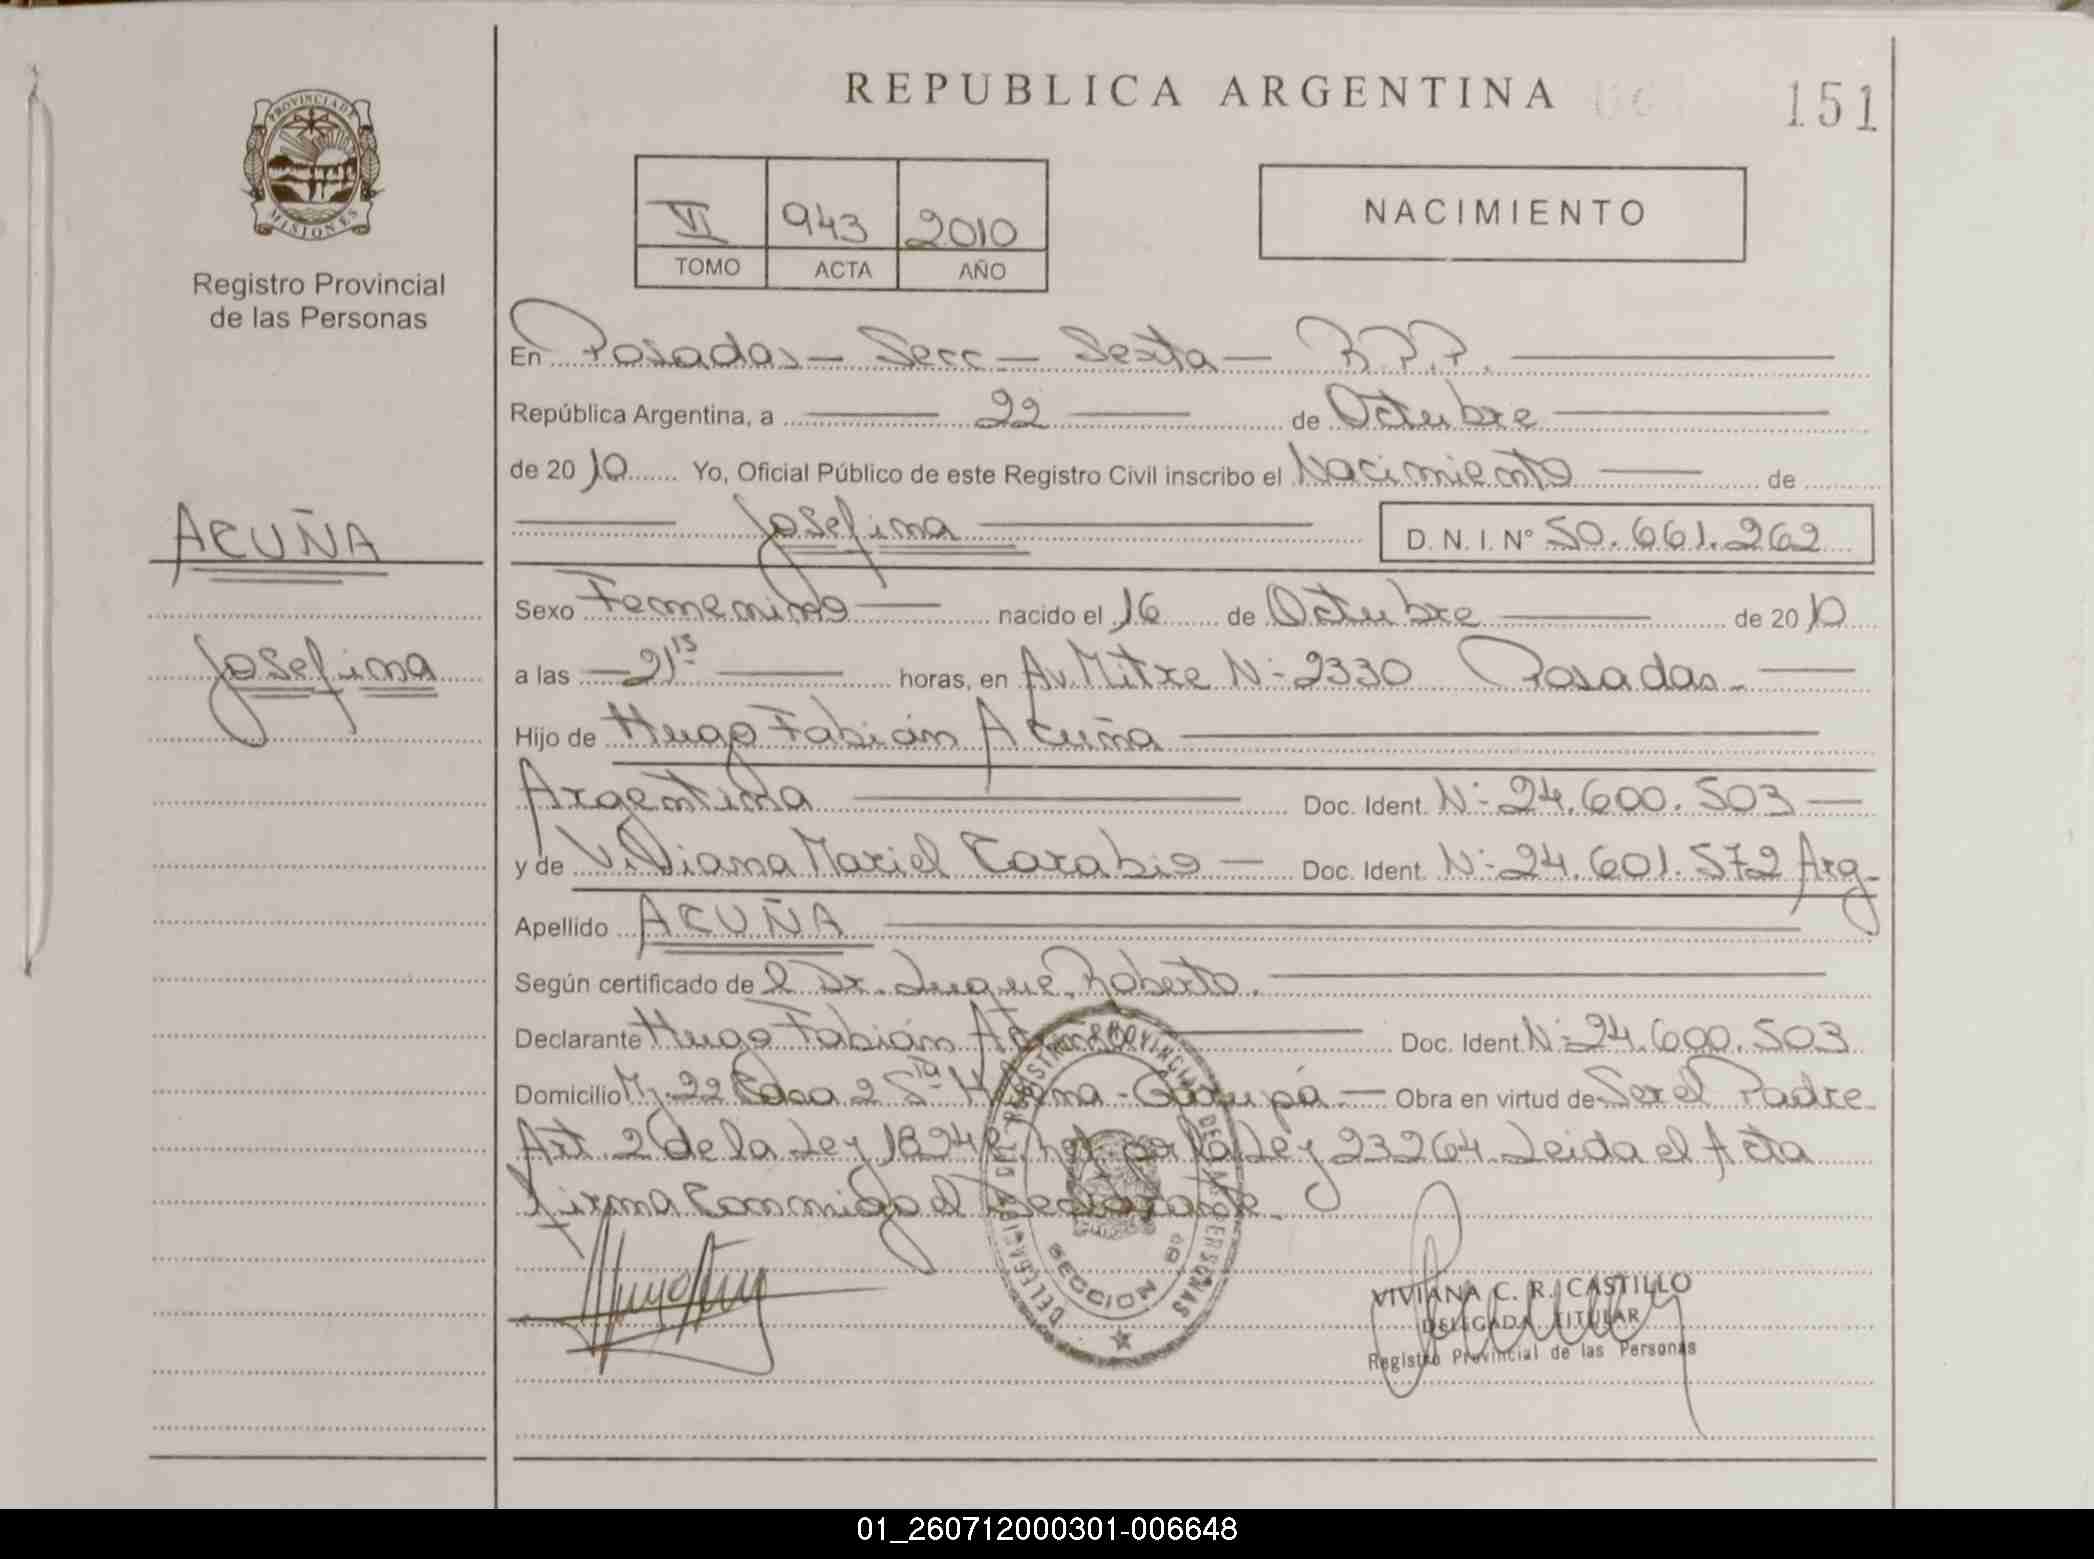 REPUBLICA ARGENTINA
151
PROVINCIA DE
MISIONES
Registro Provincial
de las Personas
VI 943 2010
TOMO ACTA AÑO
NACIMIENTO
En Posadas - Secc - Sexta - R.P.P.
República Argentina, a 22 de Octubre
de 2010 Yo, Oficial Público de este Registro Civil inscribo el Nacimiento de
Josefina D. N. I. N° 50.661.262
ACUÑA
Josefina
Sexo Femenino nacido el 16 de Octubre de 2010
a las 21 15 horas, en Av. Mitre N- 2330 Posadas -
Hijo de Hugo Fabián Acuña
Argentina Doc. Ident. N- 24.600.503
y de Viviana Mariel Carabio Doc. Ident. N- 24.601.572 Arg-
Apellido ACUÑA
Según certificado de l Dr. Luque, Roberto.
Declarante Hugo Fabián Acuña Doc. Ident N- 24.600.503
Domicilio Mz. 22 Casa 2 Sta Helena - Garupá - Obra en virtud de Ser el Padre
Art. 2 de la Ley 18248 por la Ley 23264. Leida el Acta
firma Conmigo el Declarante.
DELEGACION DEL REGISTRO PROVINCIAL DE LAS PERSONAS
SECCION 6ª
VIVIANA C. R. CASTILLO
DELEGADA TITULAR
Registro Provincial de las Personas
01_260712000301-006648